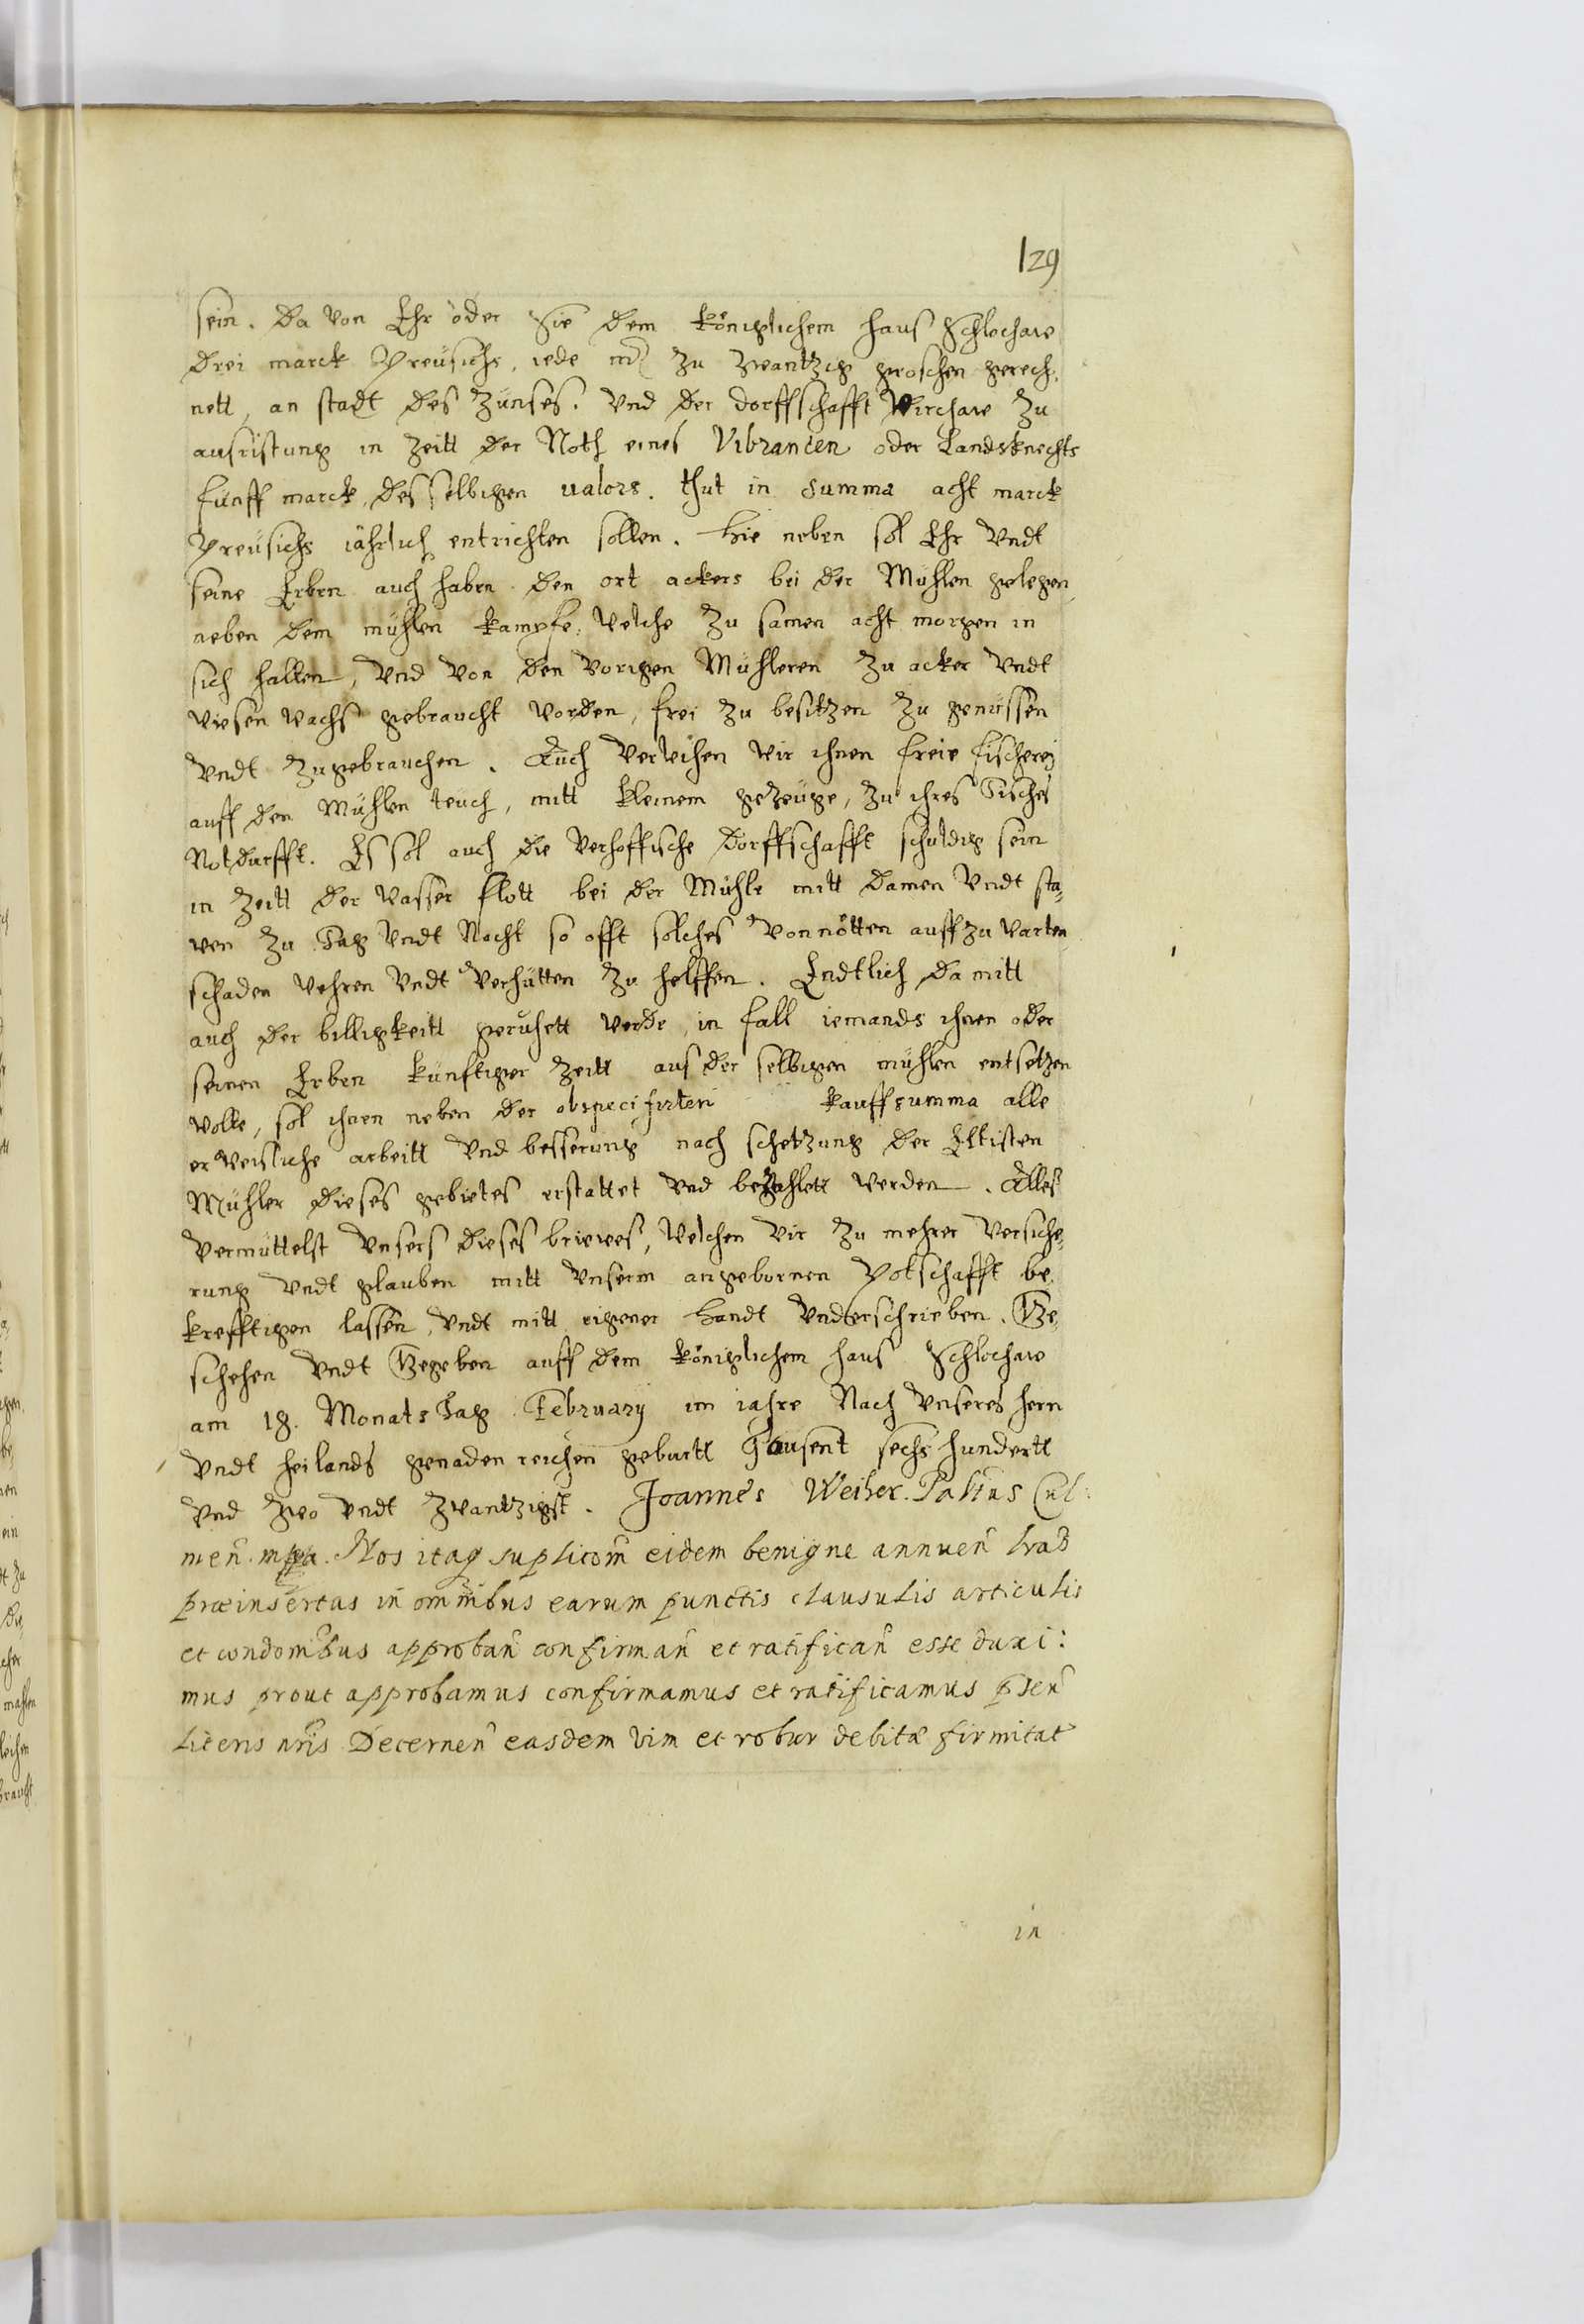 129
sein. Da von Ehr oder Sie dem Königlichem haus Schlochaw
drei marck Preusichs, iede m̃ zu zwantzig groschen gerech,
nett, an stadt des Zünses. Vnd der dorffschafft Virchaw zu
ausristung in zeitt der Noth eines Vibrancen oder Landsknechts
funff marck desselbigen valors. thut in summa acht marck
Preusichs iährlich entrichten sollen. Hie neben sol Ehr Vndt
seine Erben auch haben den ort ackers bei der Mühlen gelegen
neben dem mühlen kampfe, Welche zu samen acht morgen in
sich halten, Vnd Von den Vorigen Mühleren zu acker Vndt
Viesen Vachs gebraucht Vorden, frei zu besitzen zu genüssen
Vndt zugebrauchen. Auch Verleihen Vir ihnen freie fischerej
auff den Mühlen teuch, mitt kleinem gezeuge, zu ihres Tisches
Notdurfft. Es sol auch die Verhoffische Dorffschafft schuldig sein
in zeitt der Vasser flott bei der Mühle mitt damen Vndt sta,
wen zu Tag Vndt Nacht so offt solches Vonnötten auffzu Varten
schaden Vehren Vndt Verhütten zu helffen. Endtlich da mitt
auch der billigkeitt geruhett Verde, in fall iemands ihnen oder
seinen Erben künftiger zeitt aus der selbigen mühlen entsetzen
Volle, sol ihnen neben der obspecifirten kauffsumma alle
erVeisliche arbeitt Vnd besserung nach schetzung der Eltisten
Mühler dieses gebietes erstattet Vnd bezahlett Verden. Alles
Vermüttelst Vnsers dieses brieves, Welchen Vir zu mehrer Versiche,
rung Vndt glauben mitt Vnserm angebornen Potschafft be,
krefftigen lassen, Vndt mitt eigener Handt Vnderschrieben. Ge,
schehen Vndt Gegeben auff dem Königlichem haus Schlochaw
am 18. Monats Tag February im iahre Nach Vnseres hern
Vndt heilands genadenreichen geburtt Tausent sechs hundertt
Vnd Zwo Vndt Zwantzigst. Joannes Weiher. Paltnus Cul:
men̄. mpa. Nos itaq suplicom̄ eidem benigne annuen̄ lrãs
præinsertas in omnibus earum punctis clausulis articulis
et condom̄bus approban̄ confirman̄ et ratifican̄ esse duxi:
mus prout approbamus confirmamus et ratificamus p̄sen̄
literis nr̄is Decernen̄ easdem vim et robur debitæ firmitat
in